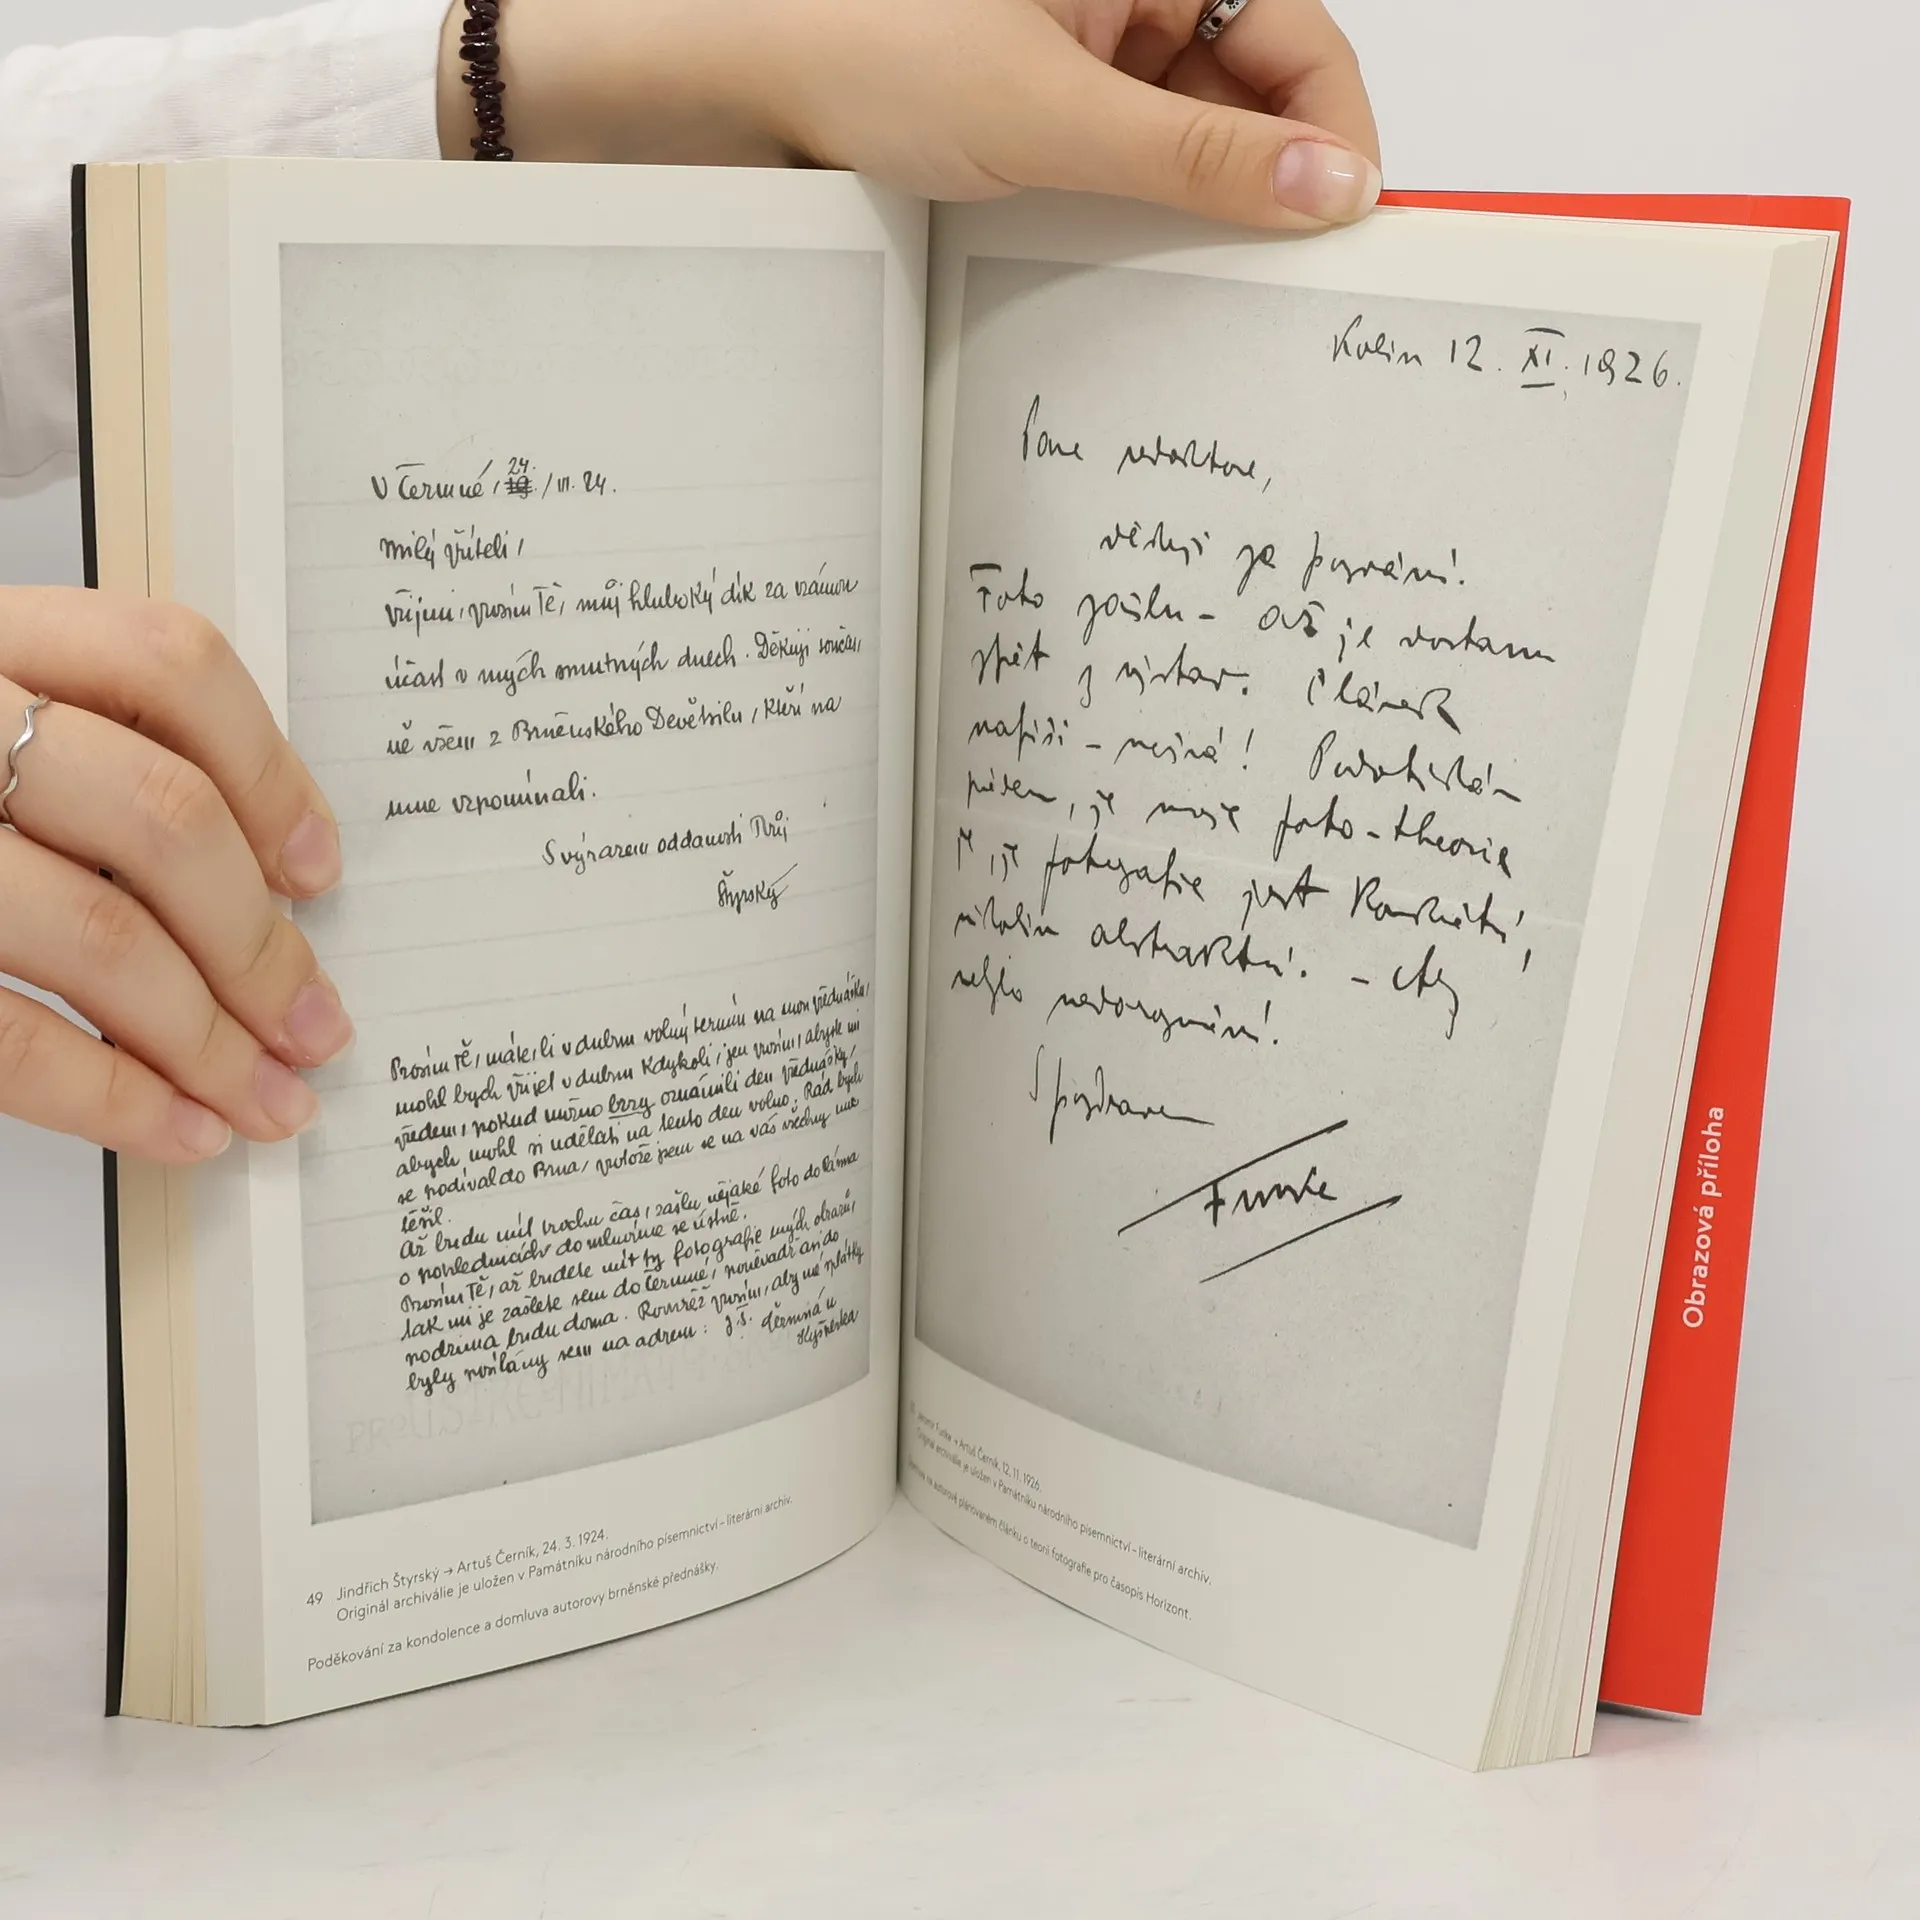 V Čermné, 24. /III. 24.
Milý příteli,
Přijmi, prosím Tě, můj hluboký dík za vzácnou
účast v mých smutných dnech. Děkuji součas,
ně všem z Brněnského Devětsilu, kteří na
mne vzpomínali.
S výrazem oddanosti Tvůj
Štyrský
Prosím Tě, máte, li v dubnu volný termín na mou přednášku,
mohl bych přijet v dubnu kdykoli, jen prosím, abyste mi
předem, pokud možno brzy oznámili den přednášky,
abych mohl si udělati na tento den volno. Rád bych
se podíval do Brna, protože jsem se na vás všechny moc
těšil.
Až budu mít trochu čas, zašlu nějaké foto do Pásma
o pohlednicích domluvíme se ústně.
Prosím Tě, až budete mít ty fotografie mých obrazů,
tak mi je zašlete sem do Čermné, poněvadž asi do
podzima budu doma. Rovněž prosím, aby mé splátky
byly posílány sem na adresu: J. Š. Čermná u
Kyšperka
49 Jindřich Štyrský → Artuš Černík, 24. 3. 1924.
Originál archiválie je uložen v Památníku národního písemnictví – literární archiv.
Poděkování za kondolence a domluva autorovy brněnské přednášky.
Kolín 12. XI. 1926.
Pane redaktore,
děkuji za pozvání.
Foto zašlu – až je dostanu
zpět z výstav. Článek
napíši – nešvá! Podotýkám
předem, že moje foto-theorie
je, že fotografie jest konkrétní,
nikoliv abstraktní. – Aby
nebylo nedorozumění.
S pozdravem
Funke
Jaromír Funke → Artuš Černík, 12. 11. 1926.
Originál archiválie je uložen v Památníku národního písemnictví – literární archiv.
Domluva na autorově plánovaném článku o teorii fotografie pro časopis Horizont.
Obrazová příloha